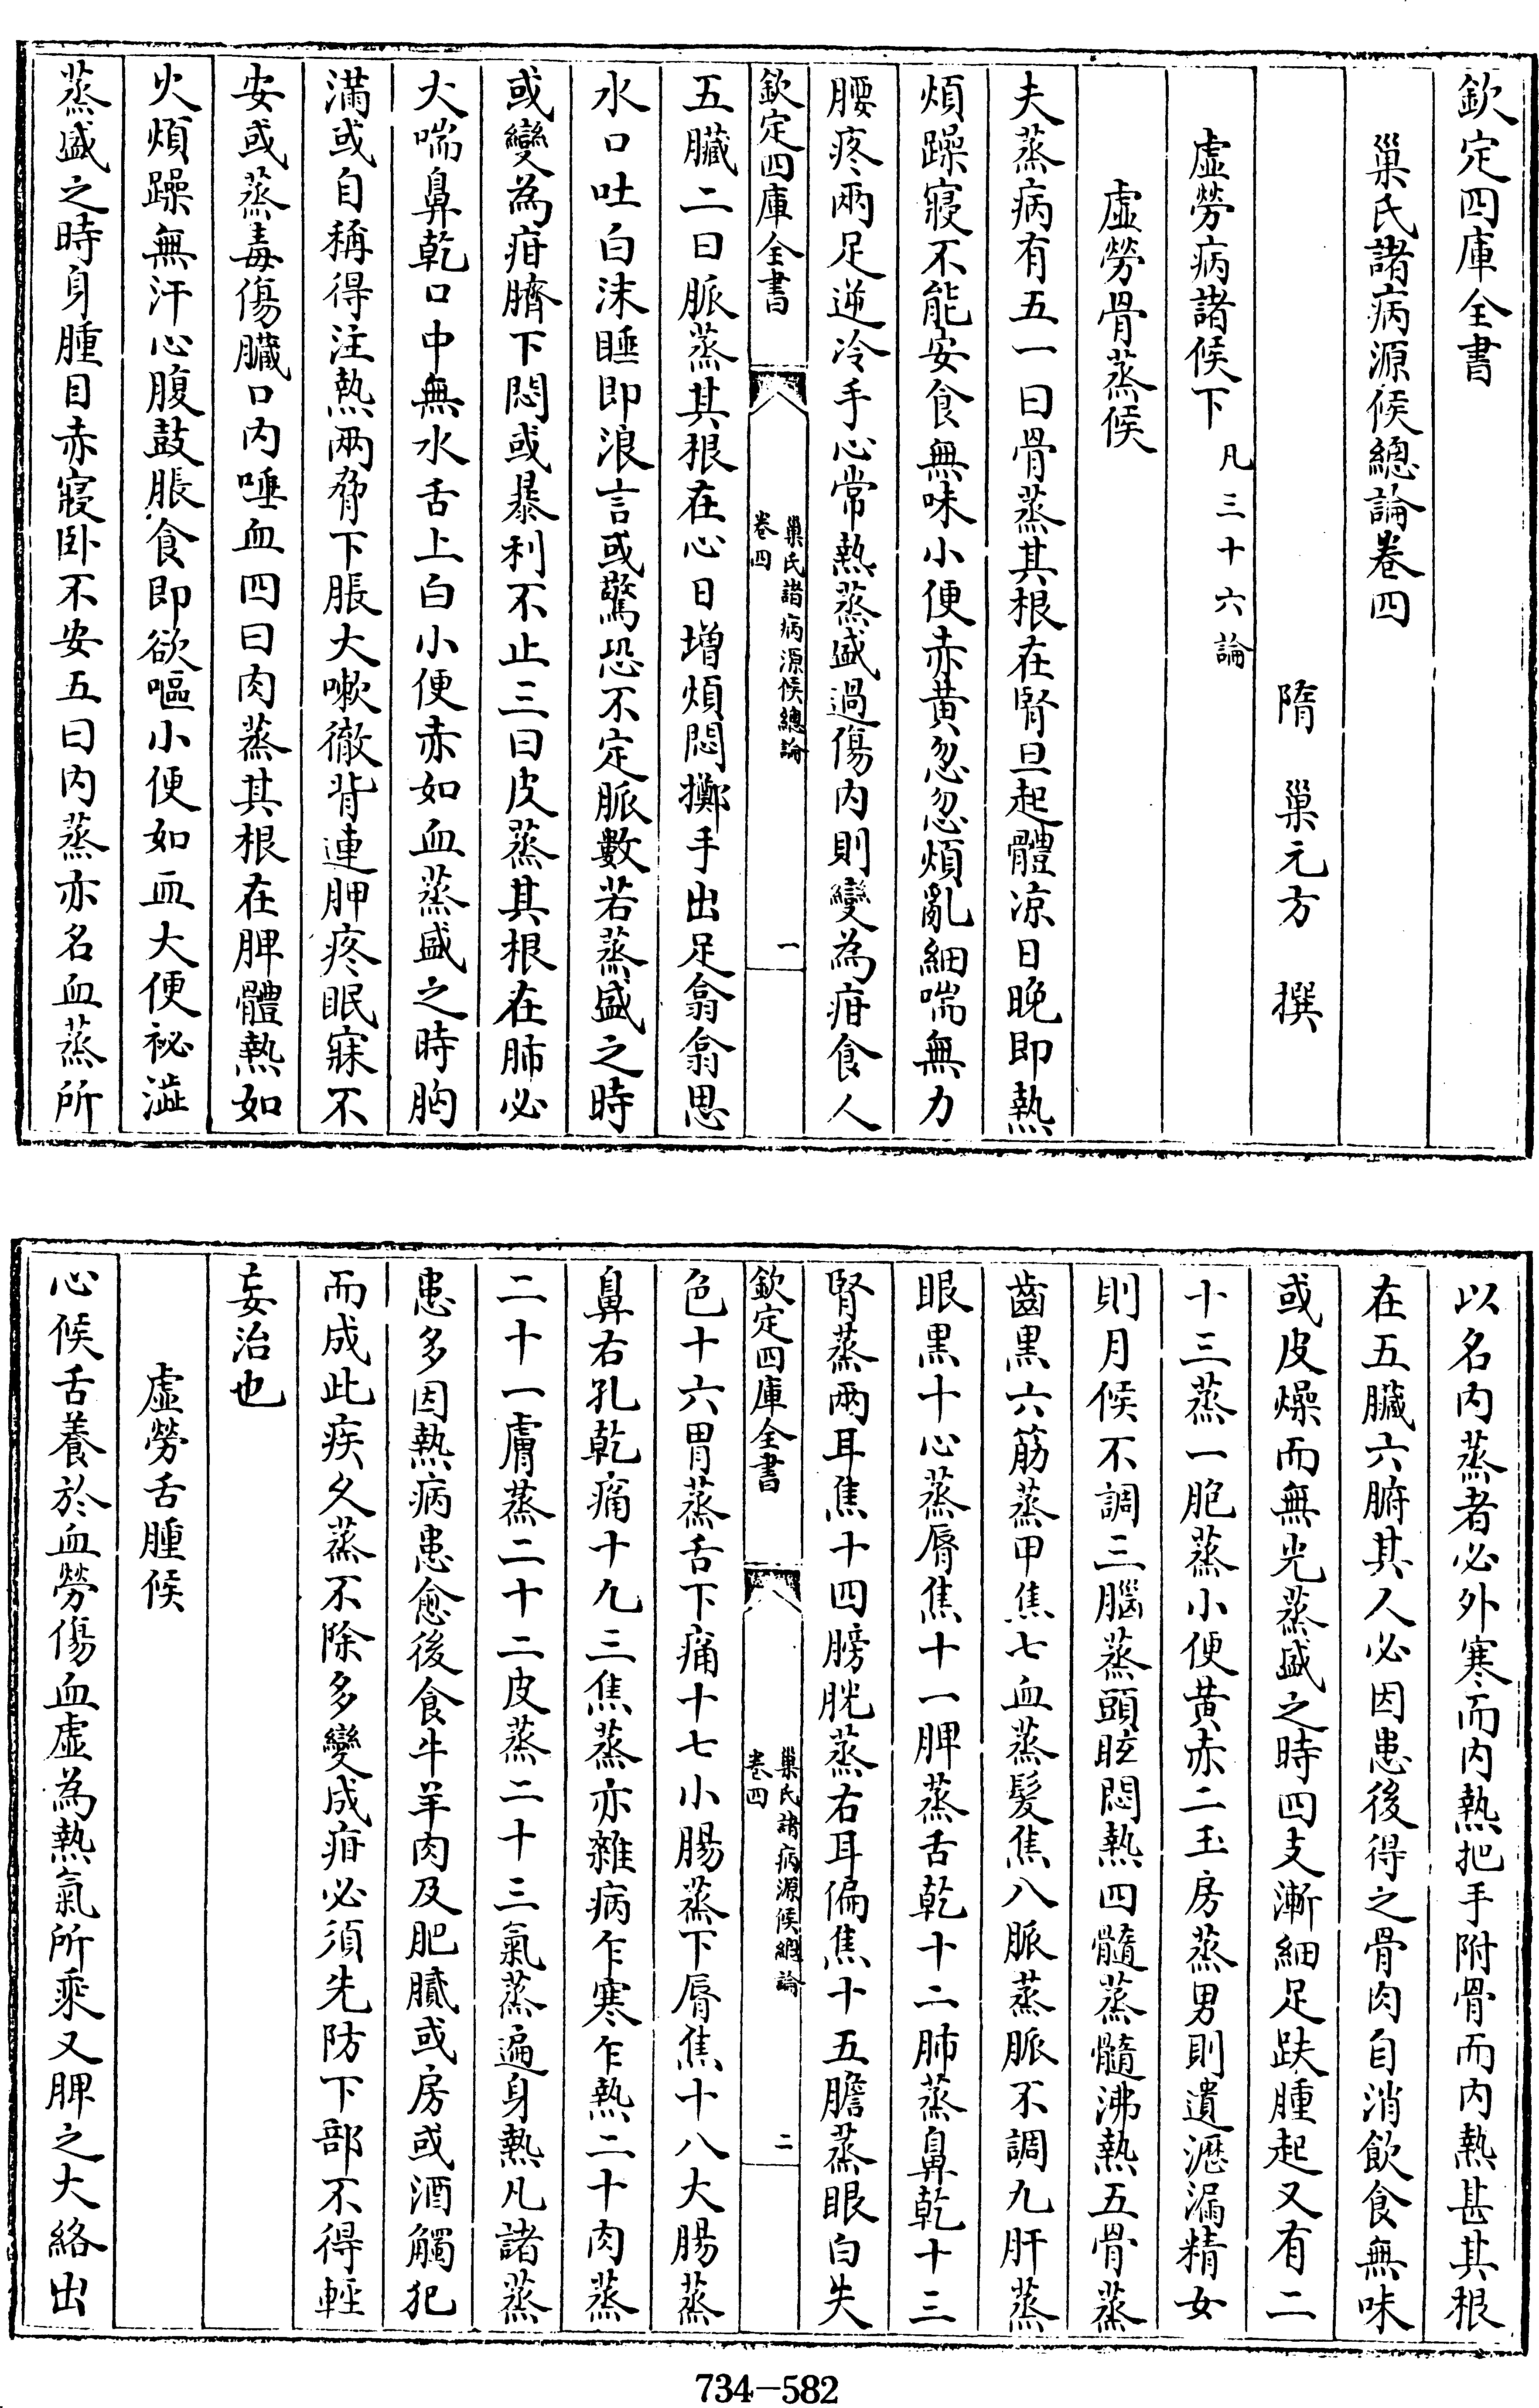 欽定四庫全書
巢氏諸病源候總論卷四
隋 巢元方 撰
虛勞病諸候下 凡三十六論
虛勞骨蒸候
夫蒸病有五一曰骨蒸其根在腎旦起體凉日晚即熱
煩躁寢不能安食無味小便赤黄忽忽煩亂細喘無力
腰疼兩足逆冷手心常熱蒸盛過傷内則變為疳食人
欽定四庫全書
巢氏諸病源候總論
卷四
一
五臟二曰脈蒸其根在心日增煩悶擲手出足翕翕思
水口吐白沫睡即浪言或驚恐不定脈數若蒸盛之時
或變為疳臍下悶或暴利不止三曰皮蒸其根在肺必
大喘鼻乾口中無水舌上白小便赤如血蒸盛之時胸
滿或自稱得注熱兩脅下脹大嗽徹背連胛疼眠寐不
安或蒸毒傷臟口内唾血四曰肉蒸其根在脾體熱如
火煩躁無汗心腹鼓脹食即欲嘔小便如血大便祕澁
蒸盛之時身腫目赤寢卧不安五曰内蒸亦名血蒸所
以名内蒸者必外寒而内熱把手附骨而内熱甚其根
在五臟六腑其人必因患後得之骨肉自消飲食無味
或皮燥而無光蒸盛之時四支漸細足趺腫起又有二
十三蒸一胞蒸小便黄赤二玉房蒸男則遺瀝漏精女
則月候不調三腦蒸頭眩悶熱四髓蒸髓沸熱五骨蒸
齒黒六筋蒸甲焦七血蒸髮焦八脈蒸脈不調九肝蒸
眼黒十心蒸脣焦十一脾蒸舌乾十二肺蒸鼻乾十三
腎蒸兩耳焦十四膀胱蒸右耳偏焦十五膽蒸眼白失
欽定四庫全書
巢氏諸病源候總論
卷四
二
色十六胃蒸舌下痛十七小腸蒸下脣焦十八大腸蒸
鼻右孔乾痛十九三焦蒸亦雜病乍寒乍熱二十肉蒸
二十一膚蒸二十二皮蒸二十三氣蒸遍身熱凡諸蒸
患多因熱病患愈後食牛羊肉及肥膩或房或酒觸犯
而成此疾久蒸不除多變成疳必須先防下部不得輕
妄治也
虛勞舌腫候
心候舌養於血勞傷血虛為熱氣所乘又脾之大絡出
734-582